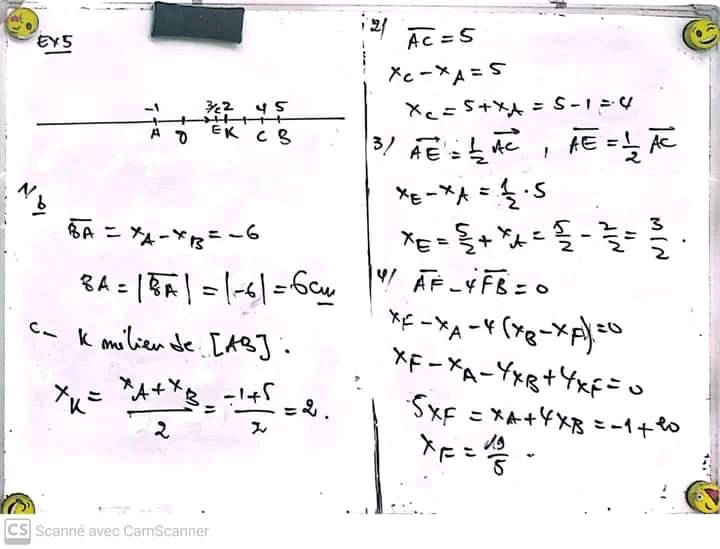 EX5
-1 3/2 2 4 5
A O E K C B
1/ b
B̅A̅ = x_A - x_B = -6
BA = |B̅A̅| = |-6| = 6cm
c- K milieu de [AB].
x_K = (x_A + x_B)/2 = (-1+5)/2 = 2.
2/ A̅C̅ = 5
x_C - x_A = 5
x_C = 5 + x_A = 5 - 1 = 4
3/ A⃗E⃗ = 1/2 A⃗C⃗ , A̅E̅ = 1/2 A̅C̅
x_E - x_A = 1/2 · 5
x_E = 5/2 + x_A = 5/2 - 2/2 = 3/2 .
4/ A̅F̅ - 4F̅B̅ = 0
x_F - x_A - 4(x_B - x_F) = 0
x_F - x_A - 4x_B + 4x_F = 0
5x_F = x_A + 4x_B = -1 + 20
x_F = 19/5 .
CS Scanné avec CamScanner